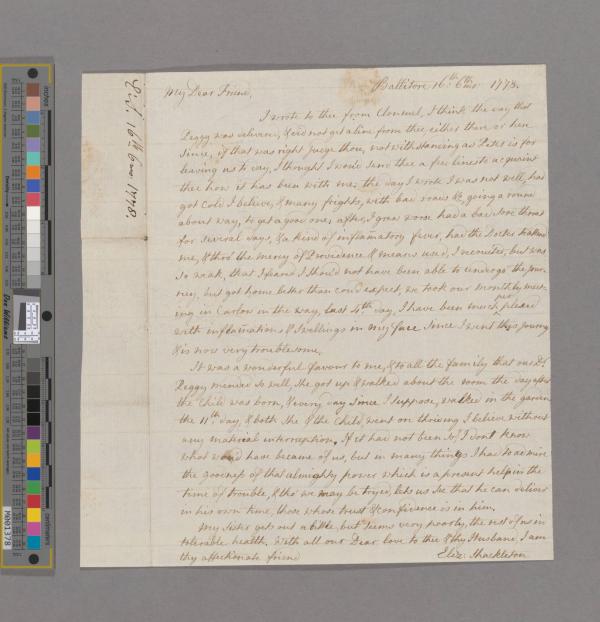 Ballitore 16th 6th mo 1778.
My Dear Friend,
I wrote to thee from Clonmel, I think the day that
Peggy was deliver'd, & did not get a line from thee either there or here
since, if that was right judge thou, notwithstanding as Peter is for
leaving us to day, I thought I wou'd send thee a few lines to acquaint
thee how it has been with me, the day I wrote I was not well, had
got Cold I believe, & many frights, with bad roads &c, going a round
about way, to get a good one, after, I grew worse had a bad sore throat
for several days, & a kind of inflamatory fever, had the Doctor
me, & thro' the mercy of Providence & means used, I recruited, but was
so weak, that I fear'd I should not have been able to undergo the jour-
ney, but got home better than could expect, we took our month ly meet-
ing in Carlow in the way, last 4th day, I have been much
with inflamations & Swellings in my face since I went this journey
& is now very troublesome.
It was a wonderful favour to me, & to all the family that our Dr
Peggy mended so well, she got up & walked about the room the day after
the Child was born, & every day since I suppose, walked in the garden
the 11th day, & both she & the Child, went on thriving I believe without
any material interruption. If it had not been so, I don't know
what would have became of us, but in many things I had to admire
the goodness of that almighty power which is a present help in the
time of trouble, & tho' we may be tryed, lets us see that he can deliver
in his own time, those whose trust & confidence is in him.
My Sister gets out a little, but seems very poorly, the rest of us in
tolerable health. With all our Dear love to thee & thy Husband. I am
thy affectionate friend
Eliz: Shackleton
16th 6mo 1778.
inches
centimetres
Don Williams
M001378